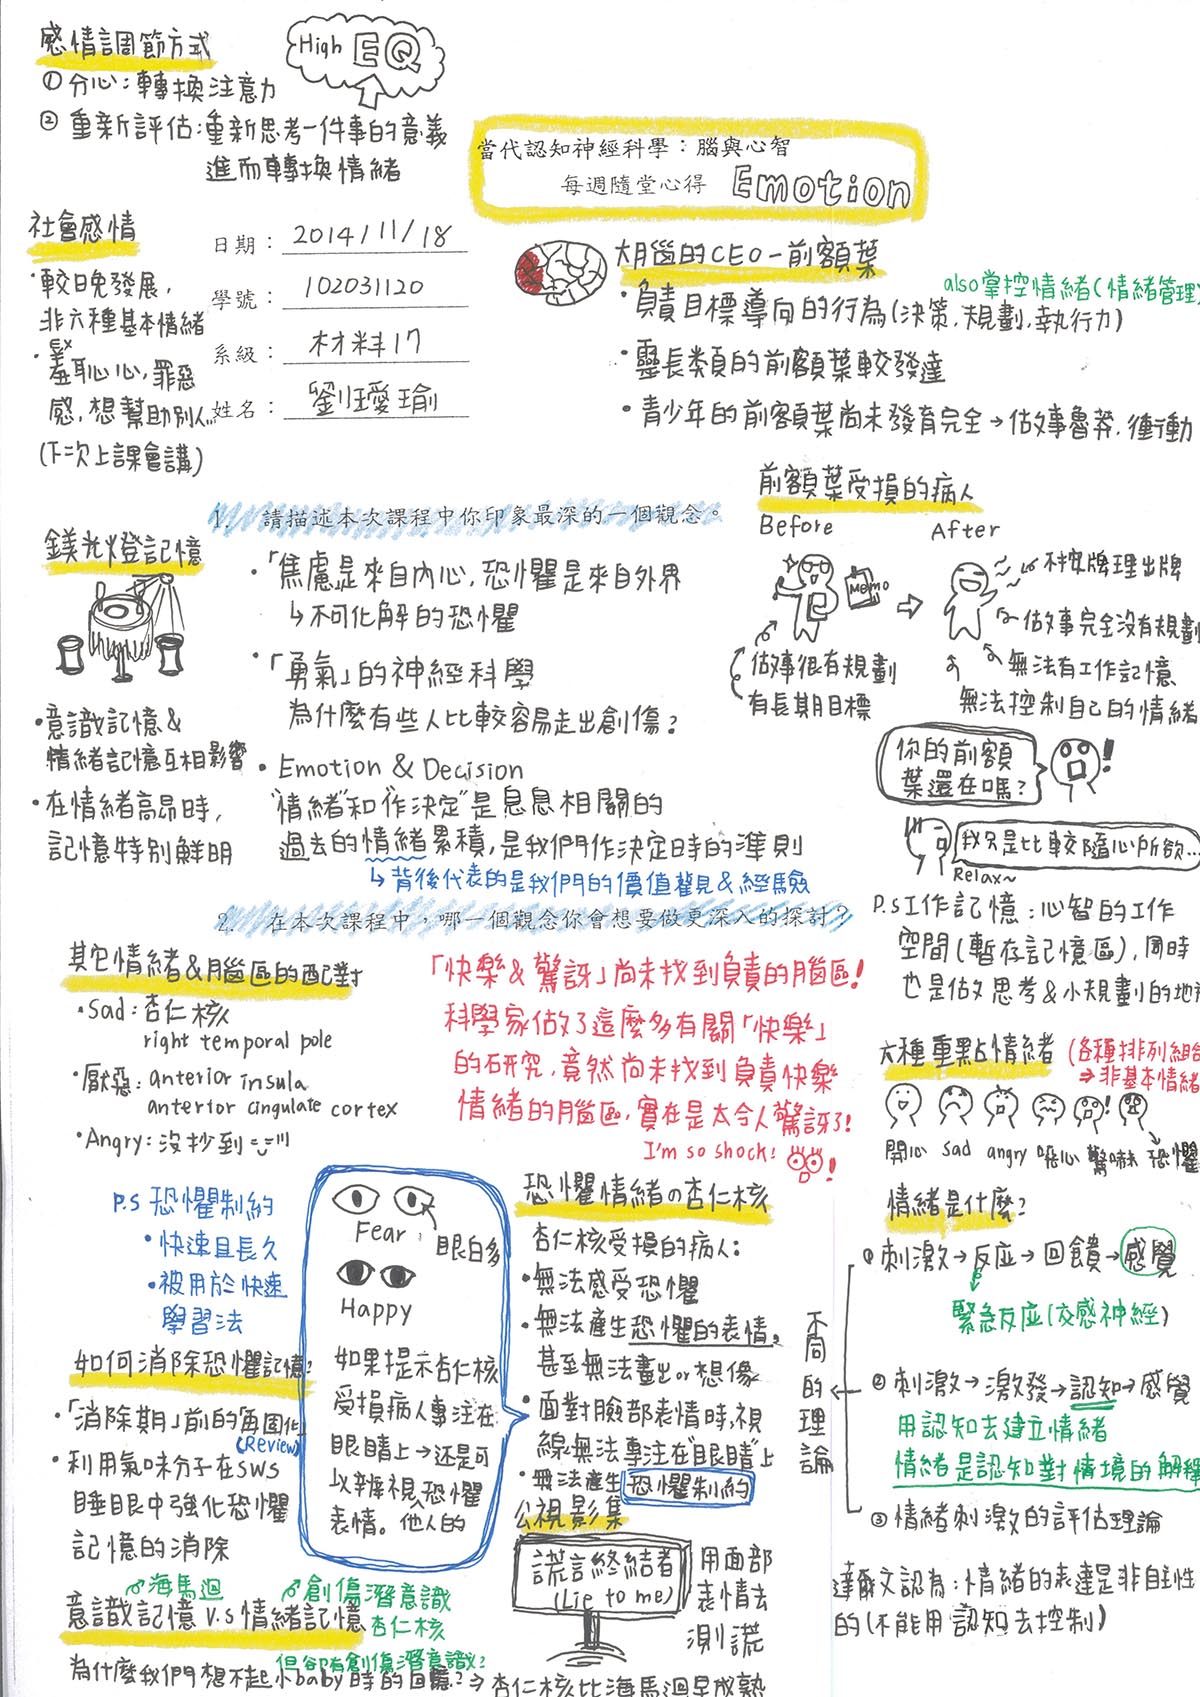 感情調節方式
①分心:轉換注意力
②重新評估:重新思考一件事的意義
進而轉換情緒
High EQ
當代認知神經科學:腦與心智
每週隨堂心得 Emotion
社會感情
·較晚發展,
非六種基本情緒
ex
·羞恥心,罪惡
感,想幫助別人...
(下次上課會講)
日期: 2014/11/18
學號: 102031120
系級: 材料17
姓名: 劉璦瑜
大腦的CEO-前額葉
also掌控情緒(情緒管理)
·負責目標導向的行為(決策,規劃,執行力)
·靈長類的前額葉較發達
·青少年的前額葉尚未發育完全→做事魯莽,衝動
前額葉受損的病人
Before
After
Memo
做事很有規劃
有長期目標
不按牌理出牌
做事完全沒有規劃
無法有工作記憶
無法控制自己的情緒
你的前額
葉還在嗎?
我只是比較隨心所欲...
Relax~
P.S工作記憶:心智的工作
空間(暫存記憶區),同時
也是做思考&小規劃的地
1. 請描述本次課程中你印象最深的一個觀念。
·「焦慮是來自內心,恐懼是來自外界
↳不可化解的恐懼
·「勇氣」的神經科學
為什麼有些人比較容易走出創傷?
·Emotion & Decision
"情緒"和"作決定"是息息相關的
過去的情緒累積,是我們作決定時的準則
↳背後代表的是我們的價值觀&經驗
鎂光燈記憶
·意識記憶&
情緒記憶互相影響
·在情緒高昂時,
記憶特別鮮明
2. 在本次課程中,哪一個觀念你會想要做更深入的探討?
其它情緒&腦區的配對
·Sad:杏仁核
right temporal pole
·厭惡:anterior insula
anterior cingulate cortex
·Angry:沒抄到
「快樂&驚訝」尚未找到負責的腦區!
科學家做了這麼多有關「快樂」
的研究,竟然尚未找到負責快樂
情緒的腦區,實在是太令人驚訝了!
I'm so shock!
六種重點情緒
(各種排列組合
⇒非基本情緒
開心 sad angry 噁心 驚嚇 恐懼
P.S 恐懼制約
·快速且長久
·被用於快速
學習法
Fear
眼白多
Happy
如果提示杏仁核
受損病人專注在
眼睛上→還是可
以辨視恐懼
表情。他人的
恐懼情緒の杏仁核
杏仁核受損的病人:
·無法感受恐懼
·無法產生恐懼的表情,
甚至無法畫出or想像
·面對臉部表情時,視
線無法專注在"眼睛"上
·無法產生恐懼制約
公視影集
謊言終結者
(Lie to me)
用面部
表情去
測謊
如何消除恐懼記憶?
·「消除期」前的「再固化」
(Review)
·利用氣味分子在SWS
睡眠中強化恐懼
記憶的消除
海馬迴
創傷潛意識
意識記憶 V.S 情緒記憶
杏仁核
但卻有創傷潛意識?
為什麼我們想不起小baby時的回憶?→杏仁核比海馬迴早成熟
情緒是什麼?
不同的理論
①刺激→反應→回饋→感覺
緊急反應(交感神經)
②刺激→激發→認知→感覺
用認知去建立情緒
情緒是認知對情境的解釋
③情緒刺激的評估理論
達爾文認為:情緒的表達是非自主性
的(不能用認知去控制)